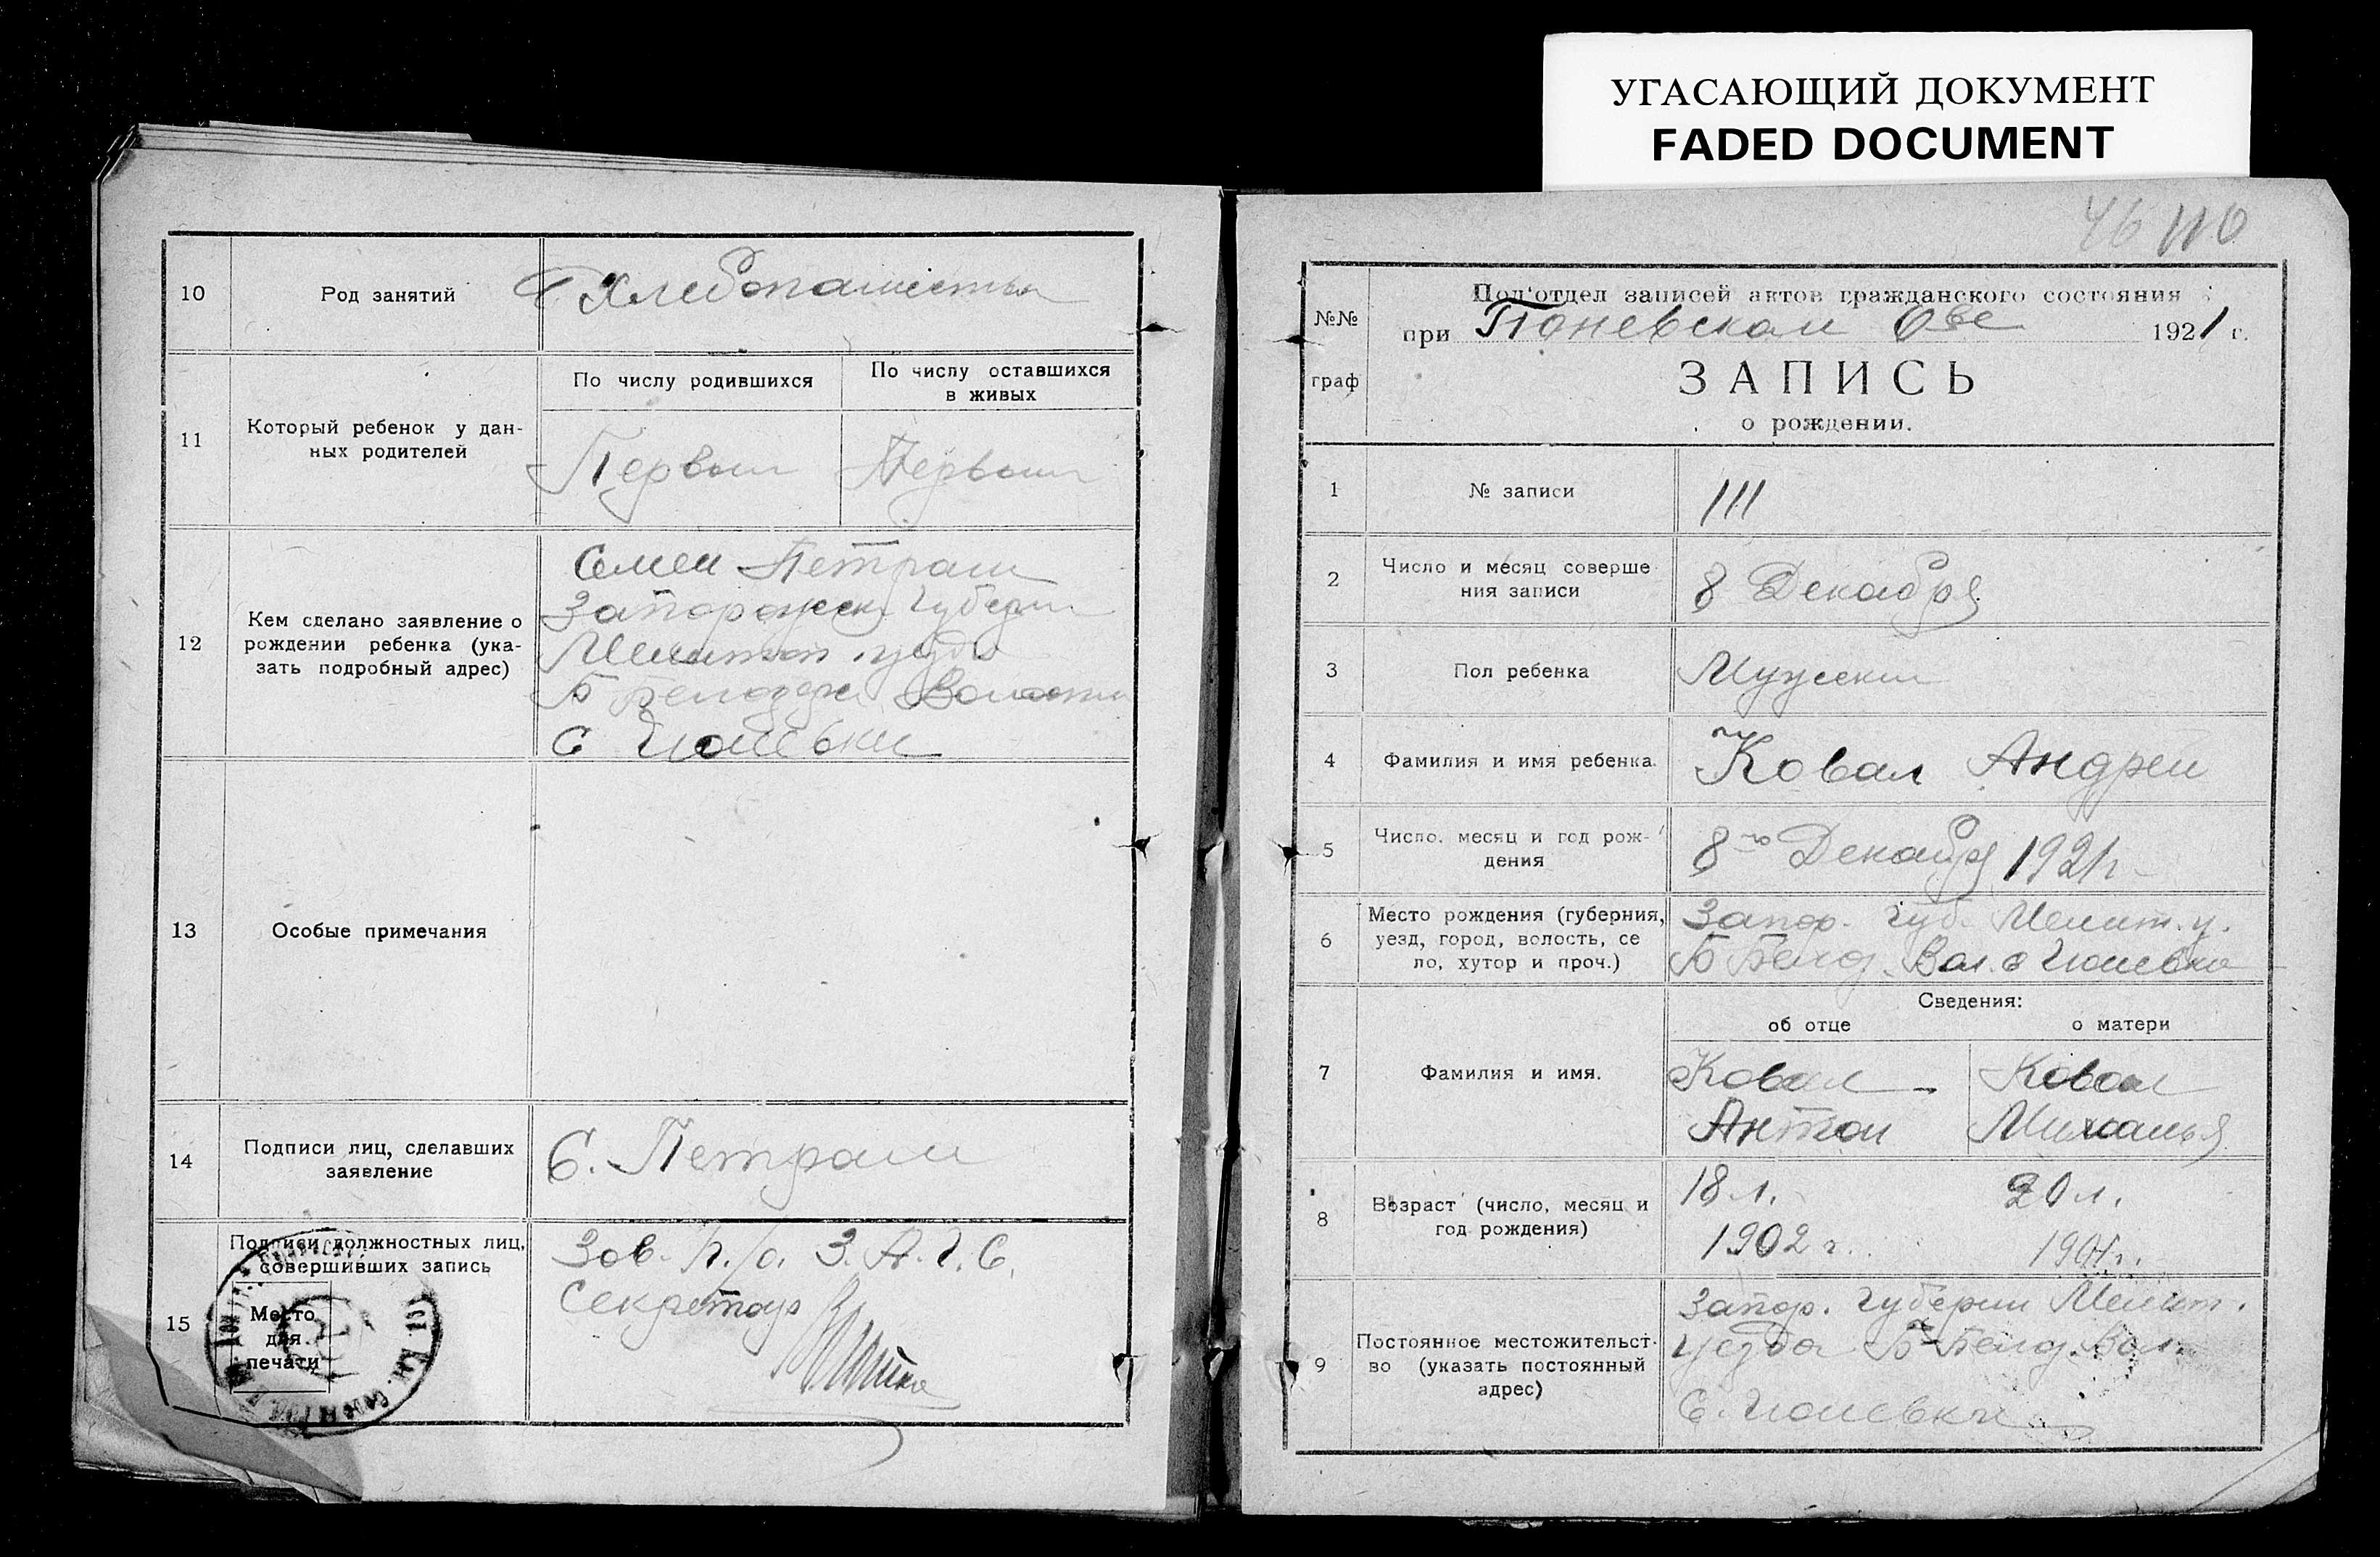 УГАСАЮЩИЙ ДОКУМЕНТ
FADED DOCUMENT
10
Род занятий
Хлебопашество
11
Который ребенок у дан-
ных родителей
По числу родившихся
По числу оставшихся
в живых
Первый
Первый
12
Кем сделано заявление о
рождении ребенка (ука-
зать подробный адрес)
Семен Петраш
Запорожск. Губерн
Мелитоп. уезда
Б Белозерс Волости
С
13
Особые примечания
14
Подписи лиц, сделавших
заявление
С. Петраш
15
Подписи должностных лиц,
совершивших запись
Место
для
печати
Зав. п./о. З.А.Г.С.
Секретарь
46 110
№№
граф
Под'отдел записей актов гражданского состояния
при 1921 г.
ЗАПИСЬ
о рождении.
1
№ записи
111
2
Число и месяц соверше
ния записи
8 Декабря
3
Пол ребенка
Мужский
4
Фамилия и имя ребенка.
Ковал Андрей
5
Число, месяц и год рож-
дения
8го Декабря 1921 г.
6
Место рождения (губерния,
уезд, город, волость, се
ло, хутор и проч.)
Запор. Губ. Мелит. у.
Б Белоз. Вол. с
7
Фамилия и имя.
Сведения:
об отце
о матери
Ковал
Антон
Ковал
8
Возраст (число, месяц и
год рождения)
18 л.
1902 г.
20 л.
1901 г.
9
Постоянное местожительст-
во (указать постоянный
адрес)
Запор. Губернии Мелит.
уезда Б-Белоз. Вол.
С.